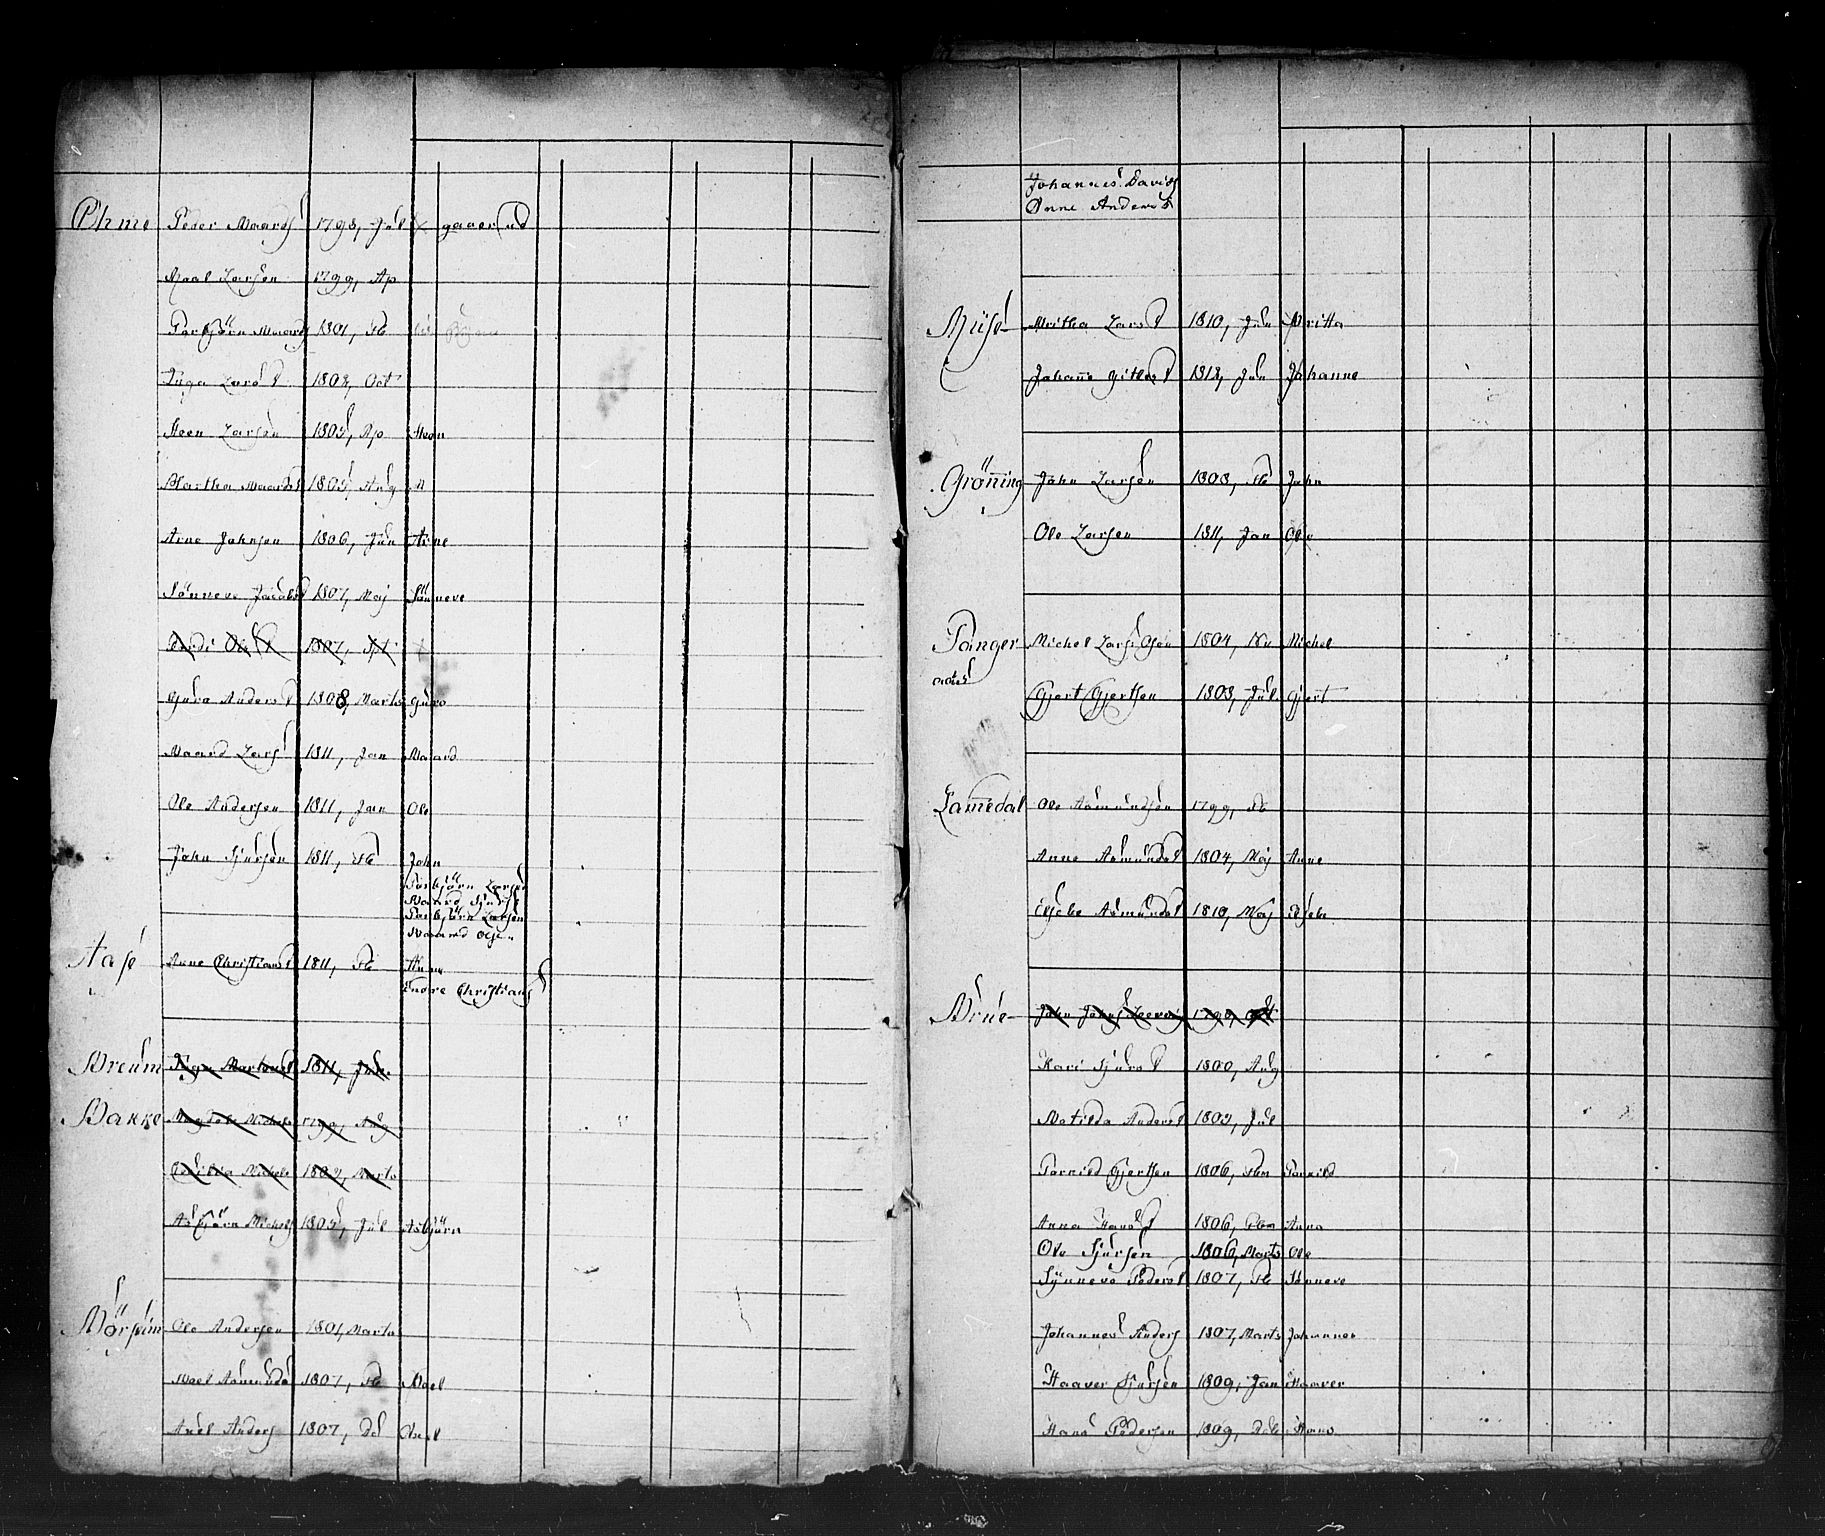 Ohme Peder Maards 1798, Jul X gaaer ud
Maal Larsen 1799, Ap
Torbjörn Maards 1801, Fb
Inga Larsd 1802, Oct
Steen Larsen 1805, Ap Steen
Martha Maards 1805, Aug M
Arne Johnsen 1806, Jun Arne
Sönneve Jacobsd 1807, Maj Sönneve
1807, Spt
Guro Andersd 1808, Marts Guro
Maard Lars 1811, Jan Maard
Ole Andersen 1811, Jan Ole
John Sjursen 1811, Fb John
Torbjörn Larsen
Maard Sjurs
Torbjörn Larsen
Maard Olsen
Aase Anne Christiansd 1811, Fb Anne
Endre Christians
Breum Inga 1811, Jul
Bakke Michels 1799, Aug
Michels 1802, Marts
Asbjörn Michels 1805, Jul Asbjörn
Mörseim Ole Andersen 1801, Marts
Moel Asmunds 1807, Fb Moel
Axel Anders 1807, Dec Axel
Johannes Davids
Anne Andersd
Myse Britha Larsd 1810, Jun Britta
Johanne Gitlesd 1812, Jun Johanne
Gröning John Larsen 1808, Fb John
Ole Larsen 1811, Jan Ole
Tanger Michel Lars Olsen 1804, Nov Michel
aas
Gjert Gjertsen 1808, Jul Gjert
Lamedal Ole Asmundsen 1799, Fb
Anne Asmundsd 1804, Maj Anne
Eljebe Asmundsd 1810, Maj
Brue John Johns 1799, Oct
Kari Sjursd 1800, Aug
Matilda Andersd 1805, Jul
Tornild Gjertsen 1806, Tornild
Anna Hansd 1806, Anna
Ole Sjursen 1806, Marts Ole
Synneve Pedersd 1807, Fb Sönneve
Johannes Anders 1807, Marts Johannes
Haaver Sjursen 1809, Jan Haaver
Hans Pedersen 1809, Hans